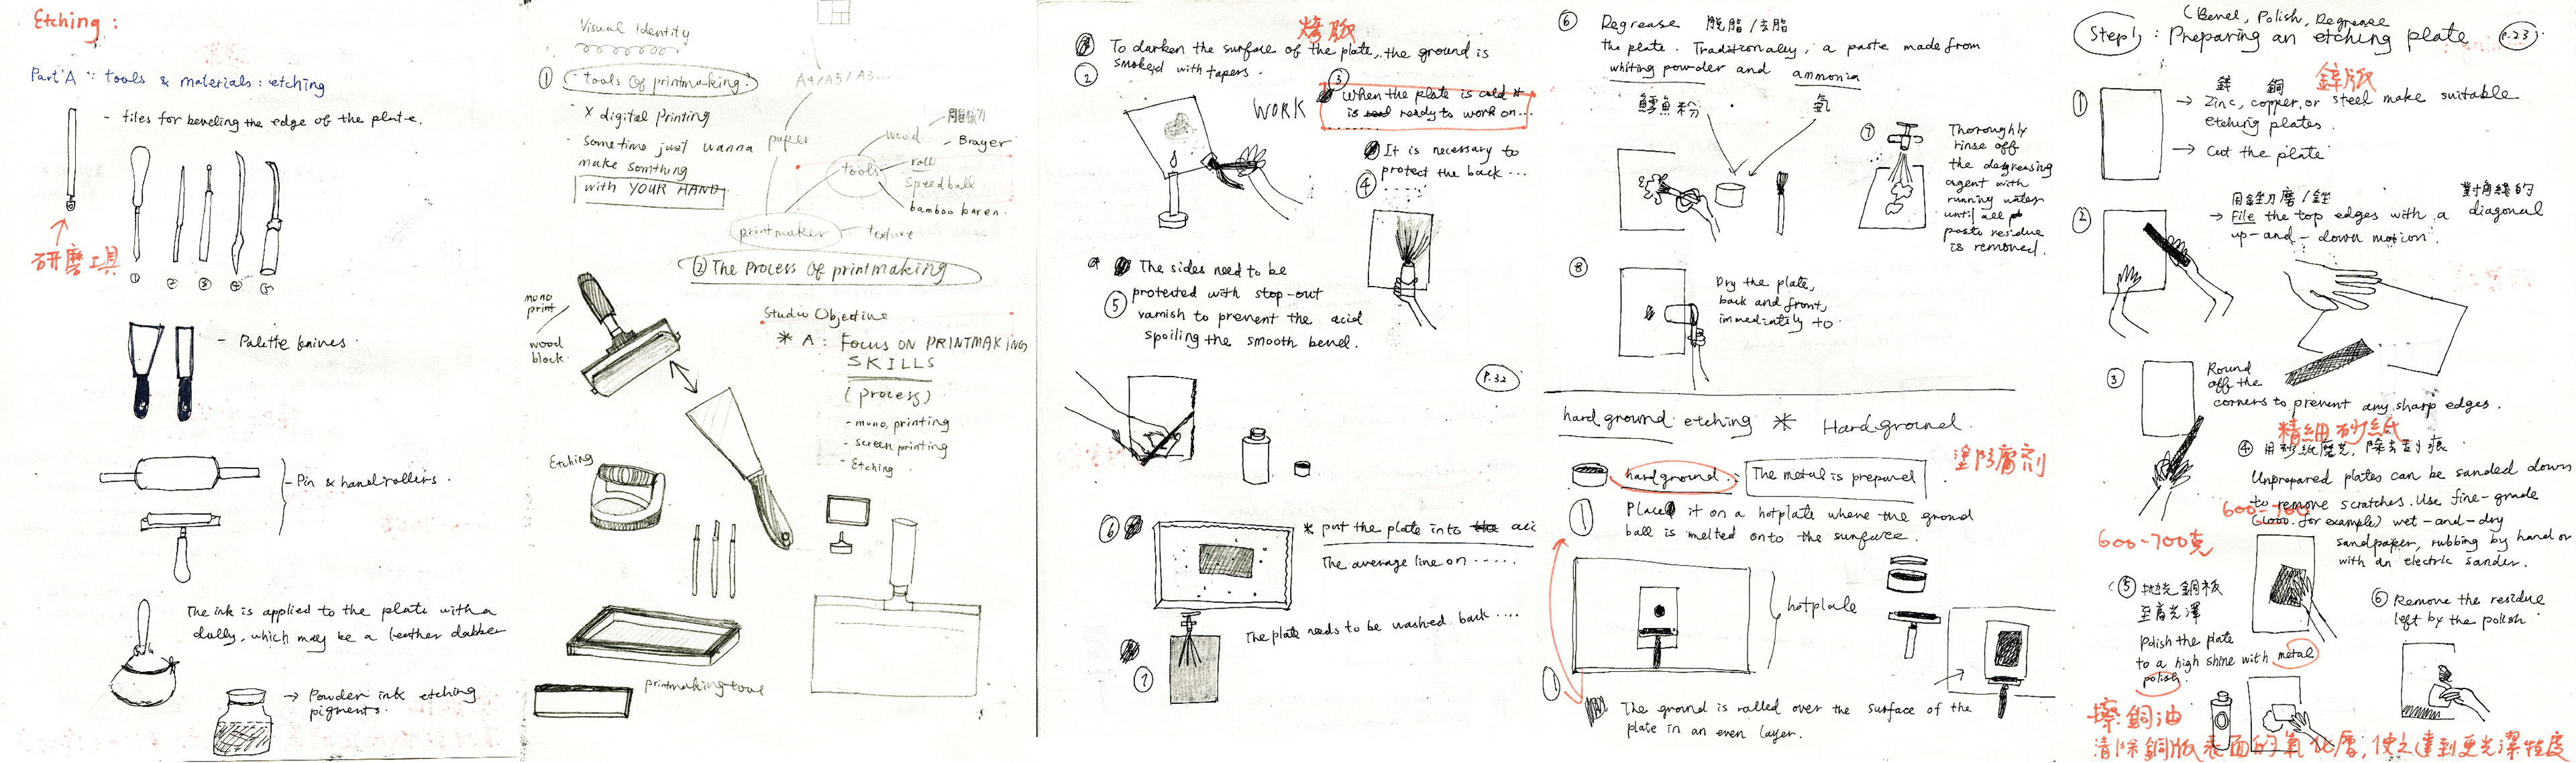 Etching :
Part A : tools & materials : etching
- files for beveling the edge of the plate.
研磨工具
① ② ③ ④ ⑤
- Palette knives.
- Pin & hand rollers.
The ink is applied to the plate with a
dolly, which may be a leather dabber
→ Powder ink etching
pigments.
Visual Identity
① tools Of printmaking.
A4/A5/A3...
X digital Printing
- sometime just wanna
make somthing
with YOUR HAND
paper
wood
- Brayer
tools
roll
speedball
bamboo baren.
printmaker - texture
② The Process Of printmaking
mono
print
wood
block.
Studio Objective
* A : FOCUS ON PRINTMAKING
SKILLS
(process)
- mono, printing
- screen printing
- Etching
Etching
printmaking tool
烤版
To darken the surface of the plate, the ground is
② smoked with tapers.
WORK
③
When the plate is cold it
is ready to work on...
It is necessary to
④ protect the back ...
The sides need to be
⑤ protected with stop-out
varnish to prevent the acid
spoiling the smooth bevel.
P.32
⑥
* put the plate into the aci
The average line on .....
The plate needs to be washed back ....
⑦
⑥ Degrease 脱脂/去脂
the plate. Traditionally, a paste made from
whiting powder and ammonia
鱈魚粉
氨
⑦ Thoroughly
rinse off
the degreasing
agent with
running water
until all
paste residue
is removed.
⑧
Dry the plate,
back and front,
immediatily to.
hard ground etching * Hard ground.
塗防腐劑
hard ground : The metal is prepared
① Placed it on a hotplate where the ground
ball is melted onto the surface.
hotplate
The ground is rolled over the surface of the
plate in an even layer.
(Bevel, Polish, Degrease
Step 1 : Preparing an etching plate P.23
鋅 銅 鋅版
① → Zinc, copper, or steel make suitable
etching plates.
→ Cut the plate
用銼刀磨/銼 對角綫的
② → File the top edges with a diagonal
up-and-down motion.
③ Round
off the
corners to prevent any sharp edges.
精細砂紙
④ 用砂紙磨光, 除去刮痕
Unprepared plates can be sanded down
to remove scratches. Use fine-grade
600-700
(1000. for example) wet-and-dry
sandpaper, rubbing by hand or
with an electric sander.
600-700克
⑤ 拋光銅板
至高光澤
Polish the plate
to a high shine with metal
polish.
⑥ Remove the residue
left by the polish
擦銅油
清除銅版表面的氧化層, 使之達到更光潔程度